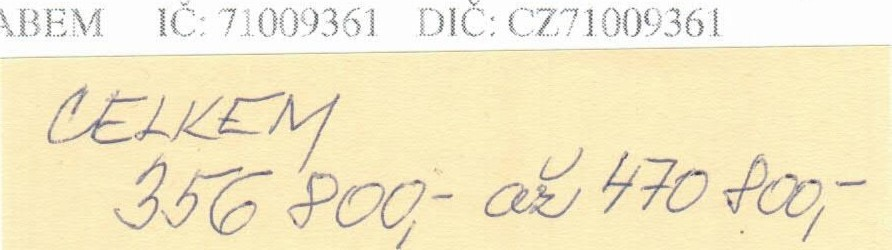 ABEM IČ: 71009361 DIČ: CZ71009361
CELKEM
356 800,- až 470 800,-